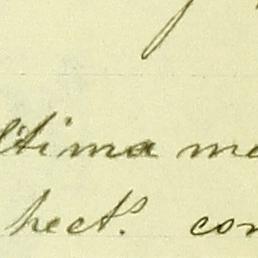 ltima me
hect.s con